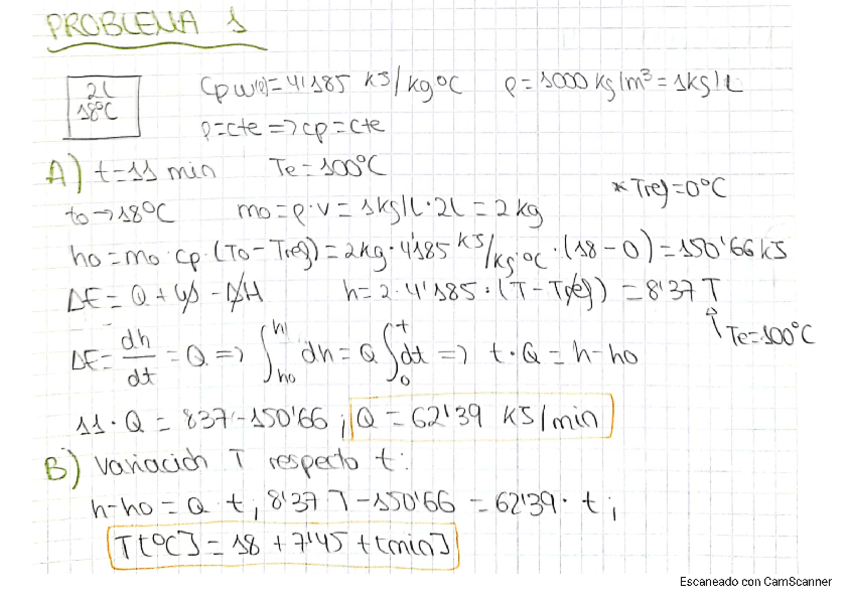 PROBLEMA 1
2l
18ºC
Cpw(l)=4'185 KJ/kgºC ρ=1000 Kg/m³=1kg/L
ρ=cte=>cp=cte
A) t=11 min Te=100ºC
*Tref=0ºC
to→18ºC mo=ρ·V=1kg/L·2L=2kg
ho=mo·cp·(To-Tref)=2kg·4'185 KJ/kg·ºC·(18-0)=150'66KJ
ΔE=Q+W-ΔH h=2·4'185·(T-Tref)=8'37T
Te=100ºC
ΔE=dh/dt=Q=>∫ho^h dh=Q∫0^t dt=> t·Q=h-ho
11·Q=837-150'66; Q=62'39 KJ/min
B) Variación T respecto t:
h-ho=Q·t; 8'37T-150'66=62'39·t;
T[ºC]=18+7'45+t[min]
Escaneado con CamScanner